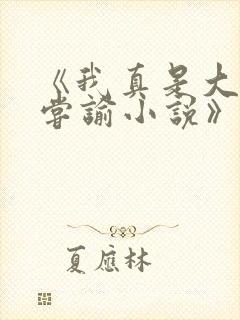 《我真是大
掌谕小说》
夏应林